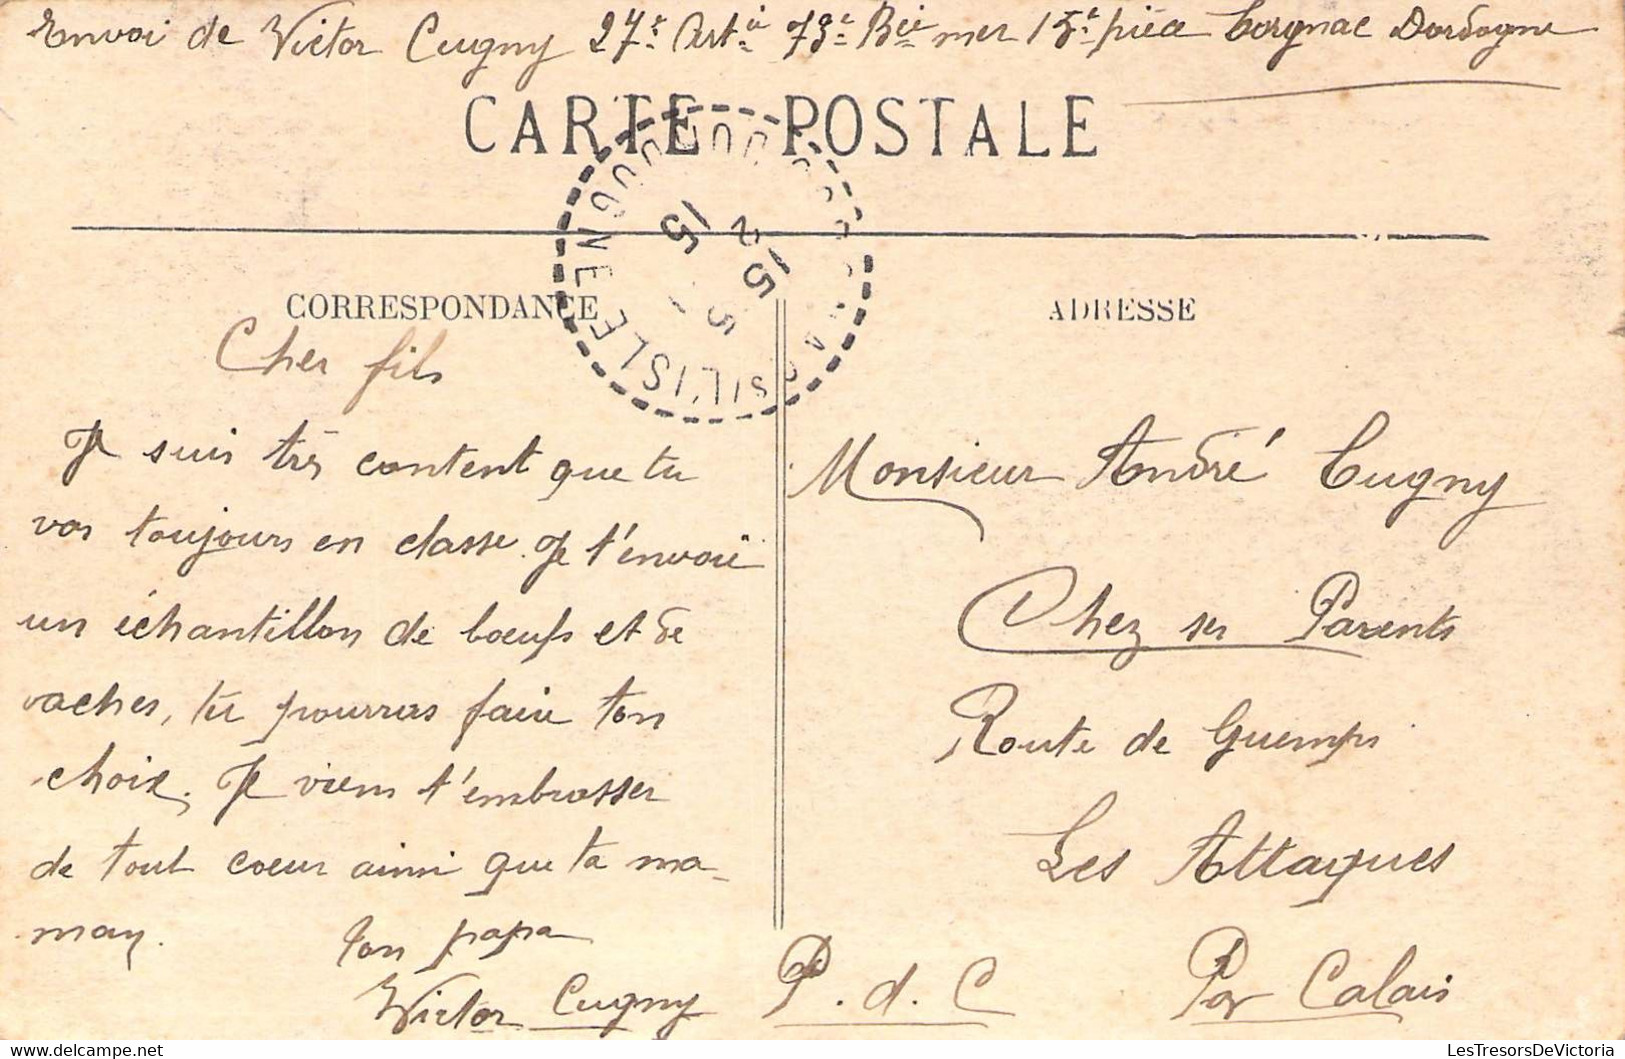 Envoi de Victor Cugny 27e Arti 73e Bie mer 15e pièce Corgnac Dordogne
CARTE POSTALE
CORRESPONDANCE
ADRESSE
15 2
15 5
SUR L'ISLE
Cher fils
Je suis très content que tu
vas toujours en classe. Je t'envoie
un échantillon de boeufs et de
vaches, tu pourras faire ton
choix. Je viens t'embrasser
de tout coeur ainsi que ta ma-
man.
ton papa
Victor Cugny
Monsieur André Cugny
Chez ses Parents
Route de Guemps
Les Attaques
Par Calais
P. d. C
LesTresorsDeVictoria